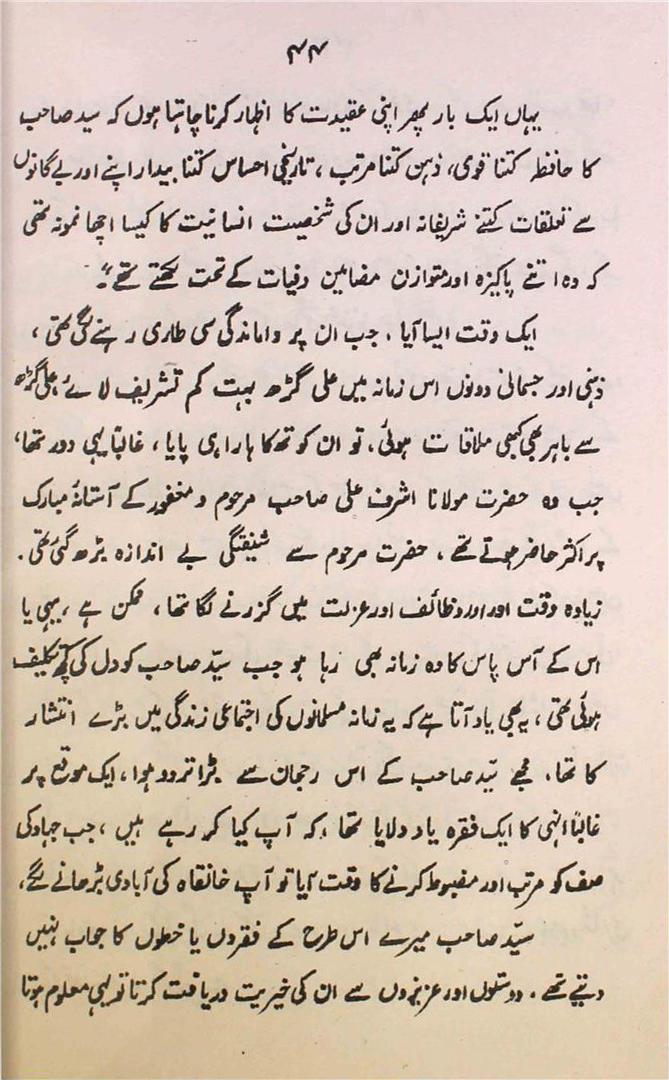 ۴۴
یہاں ایک بار پھر اپنی عقیدت کا اظہار کرنا چاہتا ہوں کہ سید صاحب
کا حافظہ کتنا قوی، ذہن کتنا مرتب، تاریخی احساس کتنا بیدار اپنے اور بے گانوں
سے تعلقات کتنے شریفانہ اور ان کی شخصیت انسانیت کا کیسا اچھا نمونہ تھی
کہ وہ اتنے پاکیزہ اور متوازن مضامین وفیات کے تحت لکھتے تھے"۔
ایک وقت ایسا آیا، جب ان پر واماندگی سی طاری رہنے لگی تھی،
ذہنی اور جسمانی دونوں اس زمانہ میں علی گڑھ بہت کم تشریف لائے، علی گڑھ
سے باہر بھی کبھی ملاقات ہوئی، تو ان کو تھکا ہارا ہی پایا، غالباً یہی دور تھا،
جب وہ حضرت مولانا اشرف علی صاحب مرحوم و مغفور کے آستانۂ مبارک
پر اکثر حاضر ہوتے تھے، حضرت مرحوم سے شیفتگی بے اندازہ بڑھ گئی تھی۔
زیادہ وقت اوراد و وظائف اور عزلت میں گزرنے لگا تھا، ممکن ہے، یہی یا
اس کے آس پاس کا وہ زمانہ بھی رہا ہو جب سیّد صاحب کو دل کی کچھ تکلیف
ہوئی تھی، یہ بھی یاد آتا ہے کہ یہ زمانہ مسلمانوں کی اجتماعی زندگی میں بڑے انتشار
کا تھا، مجھے سیّد صاحب کے اس رجحان سے بڑا تردد ہوا، ایک موقع پر
غالباً انہی کا ایک فقرہ یاد دلایا تھا، کہ آپ کیا کر رہے ہیں، جب جہاد کی
صف کو مرتب اور مضبوط کرنے کا وقت آیا تو آپ خانقاہ کی آبادی بڑھانے لگے،
سیّد صاحب میرے اس طرح کے فقروں یا خطوں کا جواب نہیں
دیتے تھے۔ دوستوں اور عزیزوں سے ان کی خیریت دریافت کرتا تو یہی معلوم ہوتا